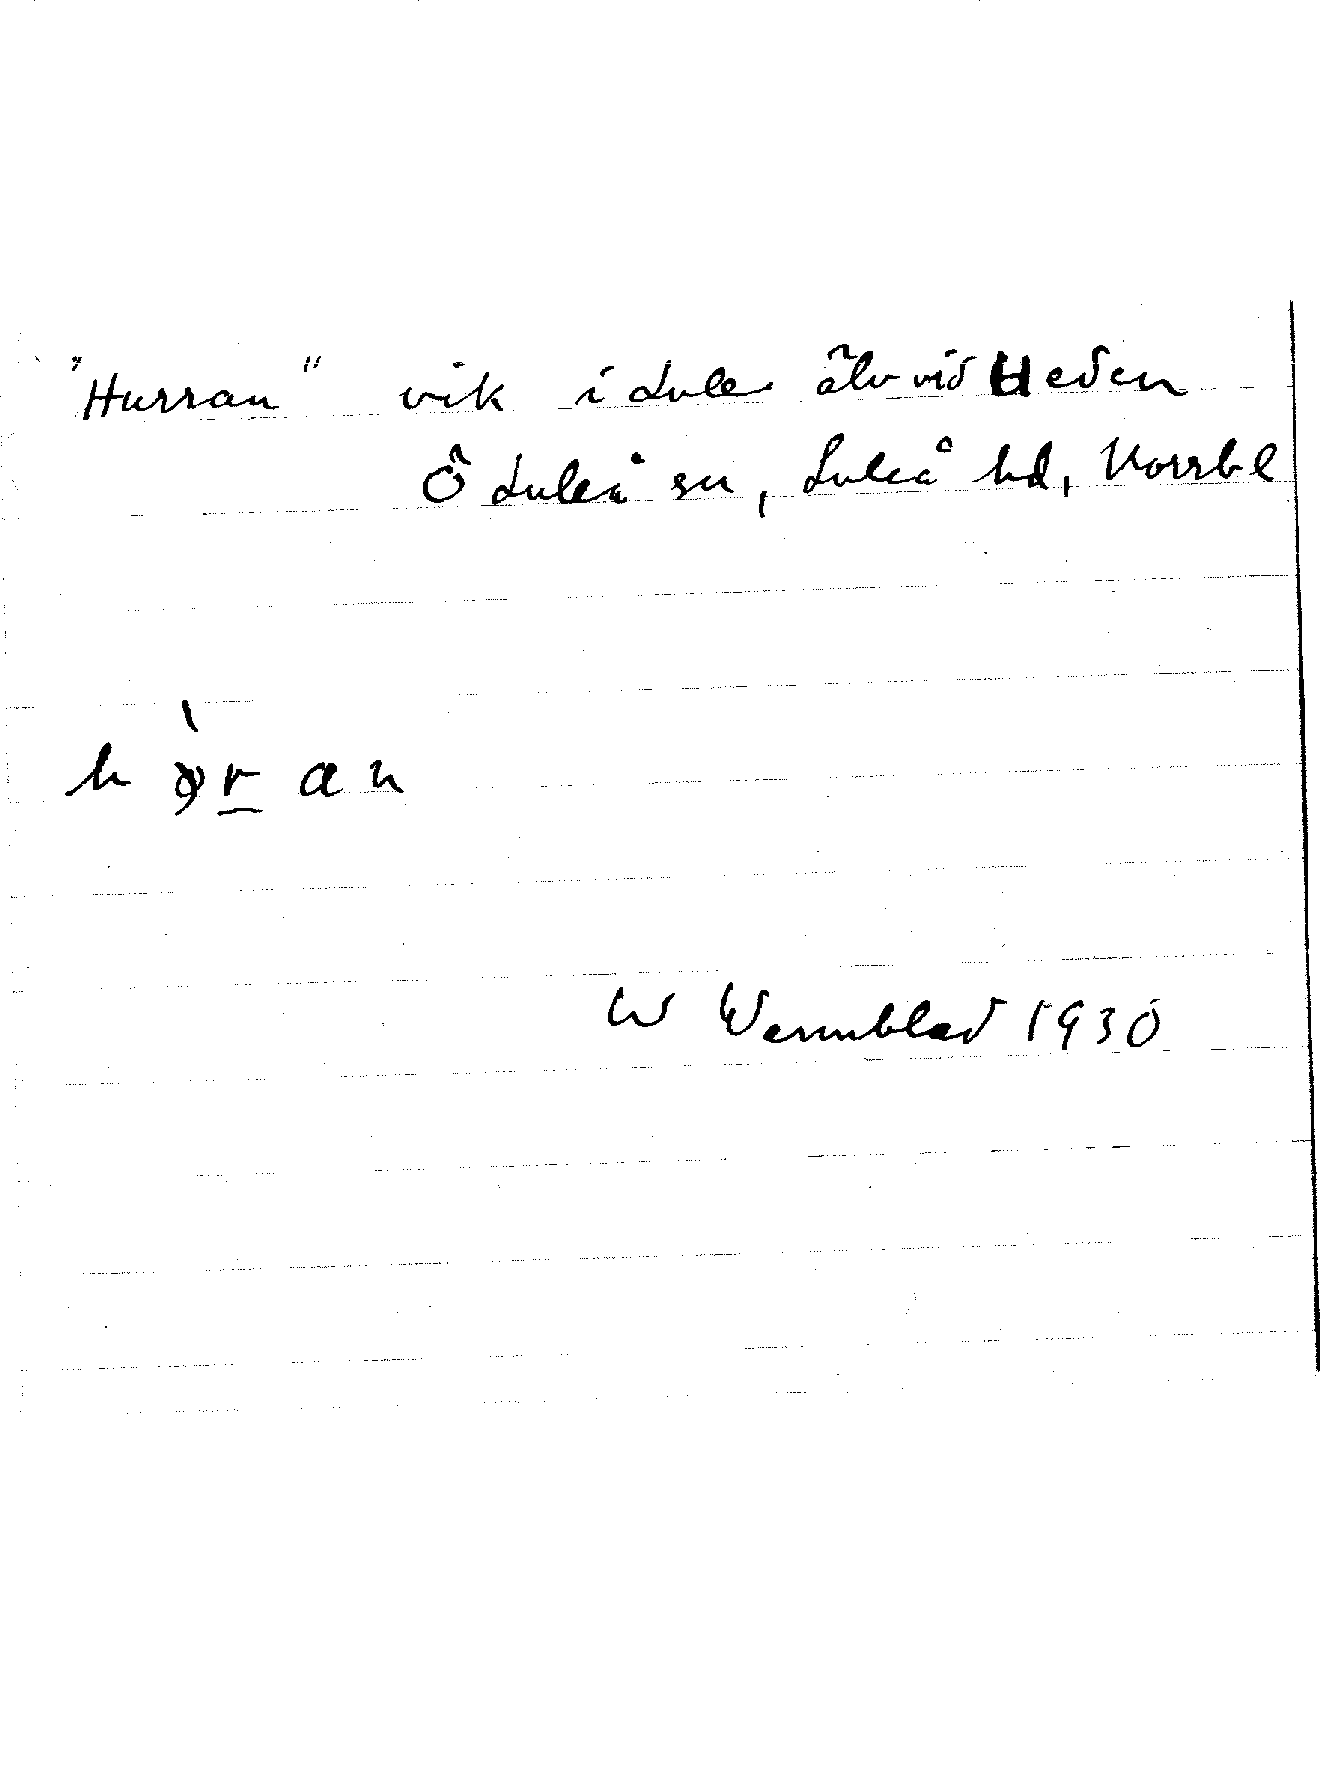 "Hurran" vik i Lule älv vid Heden
Ö Luleå sn, Luleå hd, Norrb l
W Wennblad 1930